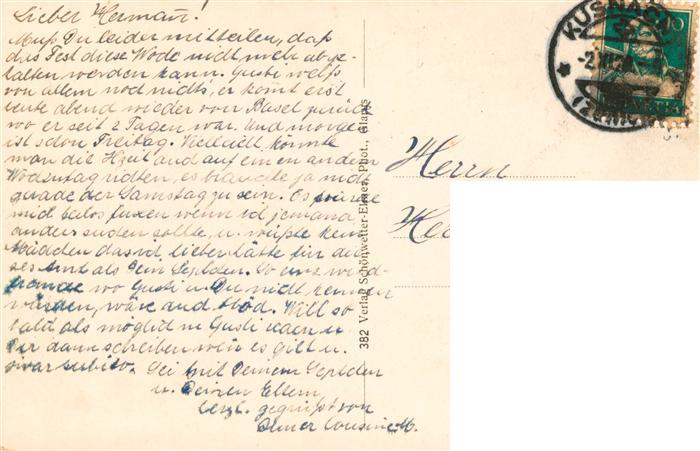 Lieber Hermann!
Muß Du leider mitteilen, daß
das Fest diese Woche nicht mehr abge-
halten werden kann. Gusti weiß
von allem noch nichts, er kommt erst
heute abend wieder von Basel zurück
wo er seit 2 Tagen war. Und morgen
ist schon Freitag. Vielleicht könnte
man die Hzeit auch auf einen andern
Wochentag richten, es brauchte ja nicht
gerade der Samstag zu sein. Es würde
mich wenn ich jemand
anders suchen sollte, u. wüßte kein
Mädchen das ich lieber hätte für die-
ses Amt als Dein So uns wild-
fremde wo Gusti u. Du nicht kennen
würden, wäre auch blöd. Will so
bald als möglich m. Gusti u.
Dir dann schreiben wenn es gilt u.
zwar subito. Sei mit Deinem
u. Deinen Eltern
herzl. gegrüßt von
Deiner Cousine M.
382 Verlag Schönwetter-Elmer, Phot., Glarus
KÜSNACHT
-2.VII.
(ZÜRICH)
10
Herrn